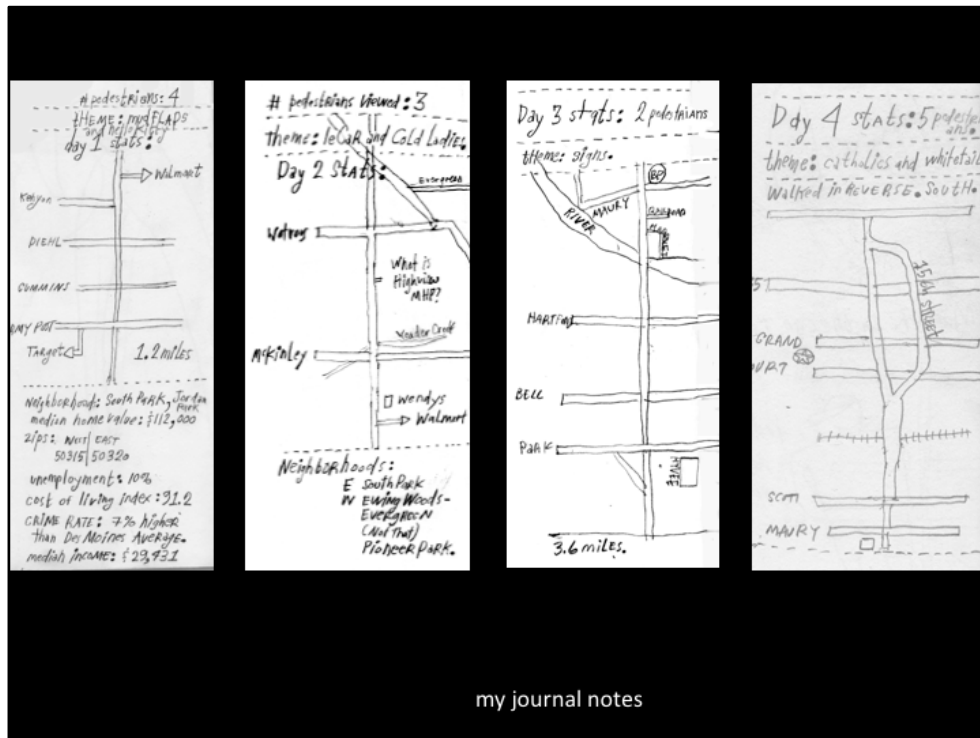 # pedestrians: 4
THEME: MUDFLAPS
day 1 stats:
Walmart
Kenyon
DIEHL
CUMMINS
RMY POST
TARGET
1.2 miles
Neighborhoods: South Park, Jordan Park
median home value: $112,000
zips: WEST | EAST
50315 | 50320
unemployment: 10%
cost of living index: 91.2
CRIME RATE: 7% higher
than Des Moines Average.
median income: $29,431
# pedestrians viewed: 3
Theme: leCar and Cold Ladies.
Day 2 Stats:
Evergreen
Watrous
What is
Highview
MHP?
McKinley
Wendys
Walmart
Neighborhoods:
E South Park
W Ewing Woods-
EVERGREEN
(Not That)
Pioneer Park.
Day 3 stats: 2 pedestrians
theme: signs.
BP
MAURY
RIVER
HARTFORD
BELL
PARK
HYVEE
3.6 miles.
Day 4 stats: 5 pedestri
ans
theme: catholics and whitetail
Walked in REVERSE. South.
15th STREET
5
GRAND
URT
SCOTT
MAURY
my journal notes